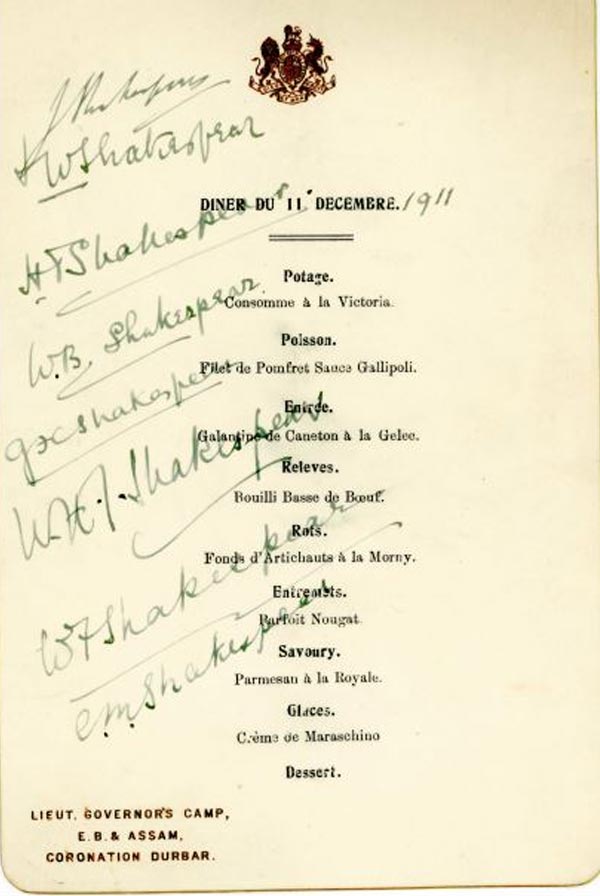 J Shakespear
LWShakespear
DINER DU 11 DECEMBRE. 1911
HTShakespear
Potage.
Consomme à la Victoria.
W.B. Shakespear
Poisson.
Filet de Pomfret Sauce Gallipoli.
Shakespear
Entrée.
Galantine de Caneton à la Gelee.
W.H.J. Shakespear
Releves.
Bouilli Basse de Bœuf.
Rots.
Fonds d'Artichauts à la Morny.
WFShakespear
Entremets.
Parfoit Nougat.
C.M. Shakespear
Savoury.
Parmesan à la Royale.
Glaces.
Crême de Maraschino
Dessert.
LIEUT. GOVERNOR'S CAMP,
E.B. & ASSAM,
CORONATION DURBAR.